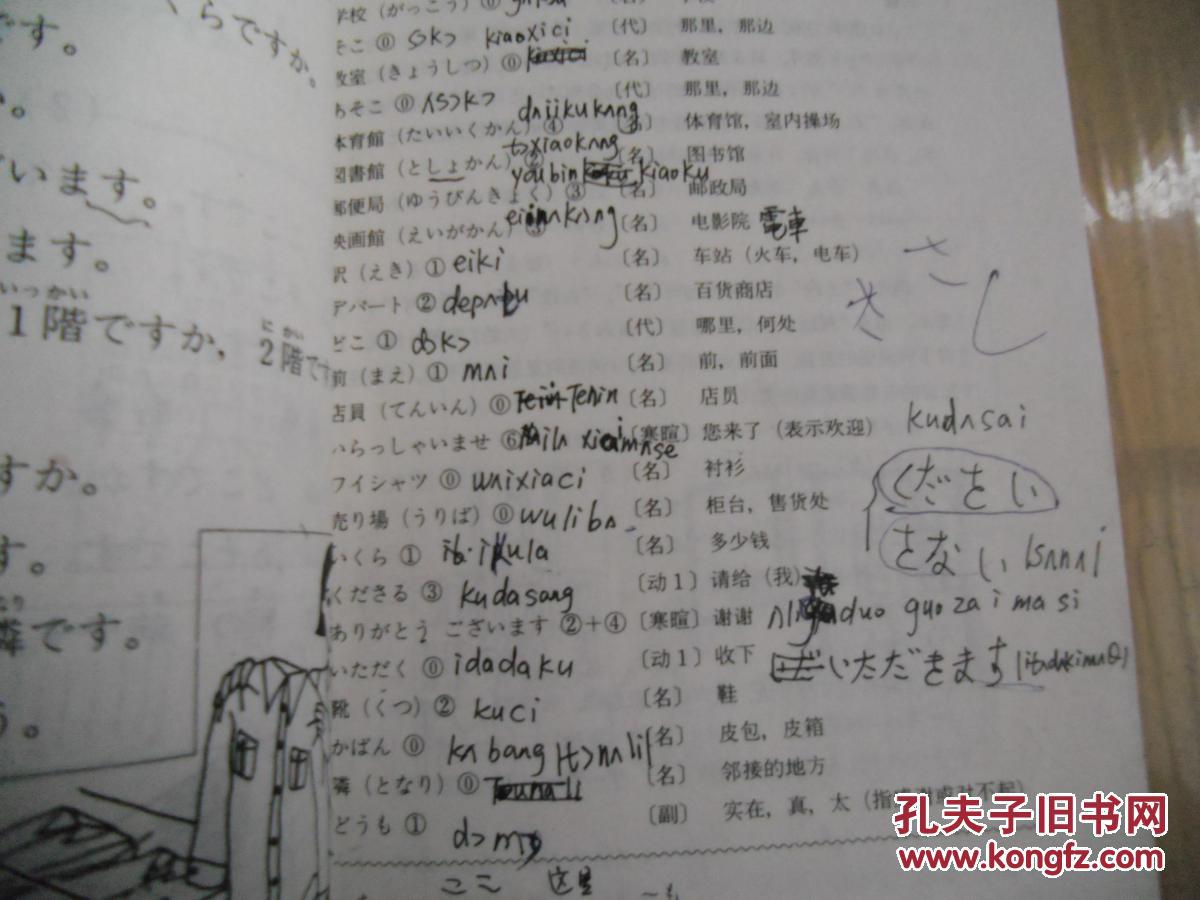 くらですか。
です。
います。
ます。
いっかい
1階ですか,
にかい
2階です
すか。
す。
です。
学校（がっこう）⓪
そこ ⓪ kiaoxici 〔代〕 那里，那边
教室（きょうしつ）⓪ 〔名〕 教室
あそこ ⓪ 〔代〕 那里，那边
体育館（たいいくかん）④ 〔名〕 体育馆，室内操场
図書館（としょかん）② 〔名〕 图书馆
郵便局（ゆうびんきょく）③ youbin kiaoku 〔名〕 邮政局
映画館（えいがかん）③ 〔名〕 电影院 電車
駅（えき）① eiki 〔名〕 车站（火车，电车）
デパート ② 〔名〕 百货商店
どこ ① 〔代〕 哪里，何处
前（まえ）① mʌi 〔名〕 前，前面
店員（てんいん）⓪ Tenin 〔名〕 店员
いらっしゃいませ ⑥ 〔寒暄〕 您来了（表示欢迎） kudʌsai
ワイシャツ ⓪ wʌixiaci 〔名〕 衬衫
売り場（うりば）⓪ wulibʌ 〔名〕 柜台，售货处 ください
いくら ① ikula 〔名〕 多少钱 さない
くださる ③ kudasang 〔动1〕 请给（我）
ありがとう ございます ②+④ 〔寒暄〕 谢谢 duo guo za i ma si
いただく ⓪ idadaku 〔动1〕 收下 いただきます
靴（くつ）② kuci 〔名〕 鞋
かばん ⓪ kʌbang 〔名〕 皮包，皮箱
隣（となり）⓪ 〔名〕 邻接的地方
どうも ① 〔副〕 实在，真，太
ここ 这里
孔夫子旧书网
www.kongfz.com